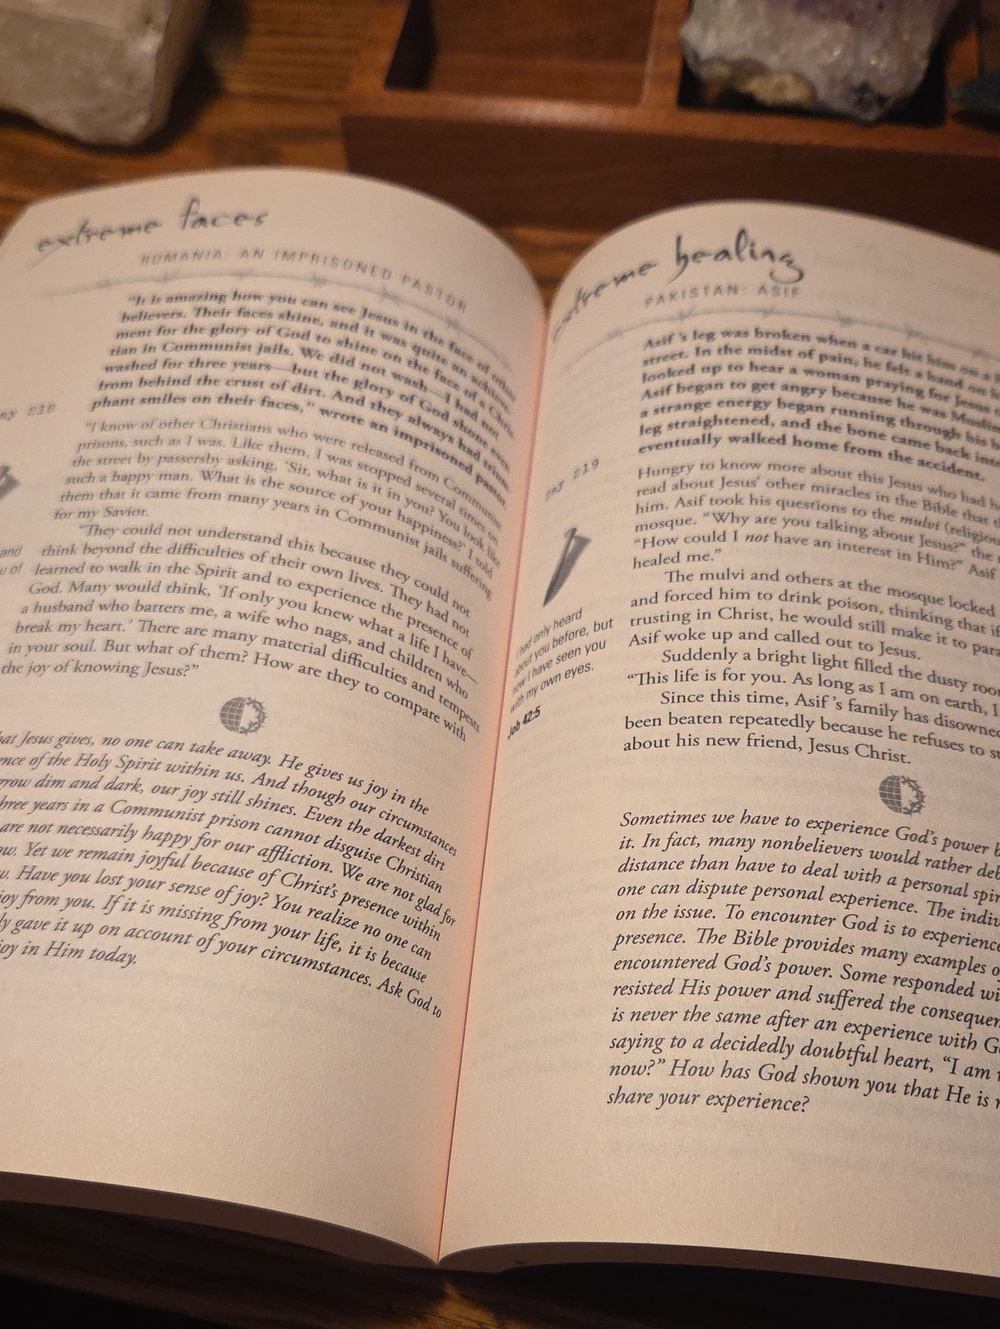 extreme faces
ROMANIA: AN IMPRISONED PASTOR
"It is amazing how you can see Jesus in the face of other
believers. Their faces shine, and it was quite an achieve-
ment for the glory of God to shine on the face of a Chris-
tian in Communist jails. We did not wash—I had not
washed for three years—but the glory of God shone even
from behind the crust of dirt. And they always had trium-
phant smiles on their faces," wrote an imprisoned pastor.
"I know of other Christians who were released from Communist
prisons, such as I was. Like them, I was stopped several times on
the street by passersby asking, 'Sir, what is it in you? You look like
such a happy man. What is the source of your happiness?' I told
them that it came from many years in Communist jails suffering
for my Savior.
"They could not understand this because they could not
think beyond the difficulties of their own lives. They had not
learned to walk in the Spirit and to experience the presence of
God. Many would think, 'If only you knew what a life I have—
a husband who batters me, a wife who nags, and children who
break my heart.' There are many material difficulties and tempests
in your soul. But what of them? How are they to compare with
the joy of knowing Jesus?"
and
of
Jesus gives, no one can take away. He gives us joy in the
of the Holy Spirit within us. And though our circumstances
grow dim and dark, our joy still shines. Even the darkest dirt
three years in a Communist prison cannot disguise Christian
are not necessarily happy for our affliction. We are not glad for
Yet we remain joyful because of Christ's presence within
Have you lost your sense of joy? You realize no one can
joy from you. If it is missing from your life, it is because
gave it up on account of your circumstances. Ask God to
joy in Him today.
extreme healing
PAKISTAN: ASIF
Asif's leg was broken when a car hit him on a
street. In the midst of pain, he felt a hand on
looked up to hear a woman praying for Jesus
Asif began to get angry because he was Muslim
a strange energy began running through his
leg straightened, and the bone came back into
eventually walked home from the accident.
Hungry to know more about this Jesus who had
read about Jesus' other miracles in the Bible that
him. Asif took his questions to the mulvi (religious
mosque. "Why are you talking about Jesus?" the
"How could I not have an interest in Him?" Asif
healed me."
The mulvi and others at the mosque locked
and forced him to drink poison, thinking that if
trusting in Christ, he would still make it to
Asif woke up and called out to Jesus.
Suddenly a bright light filled the dusty room
"This life is for you. As long as I am on earth, I
Since this time, Asif's family has disowned
been beaten repeatedly because he refuses to
about his new friend, Jesus Christ.
219
I had only heard
about you before, but
now I have seen you
with my own eyes.
Job 42:5
Sometimes we have to experience God's power
it. In fact, many nonbelievers would rather
distance than have to deal with a personal
one can dispute personal experience. The
on the issue. To encounter God is to experience
presence. The Bible provides many examples
encountered God's power. Some responded
resisted His power and suffered the
is never the same after an experience with
saying to a decidedly doubtful heart, "I am
now?" How has God shown you that He is
share your experience?